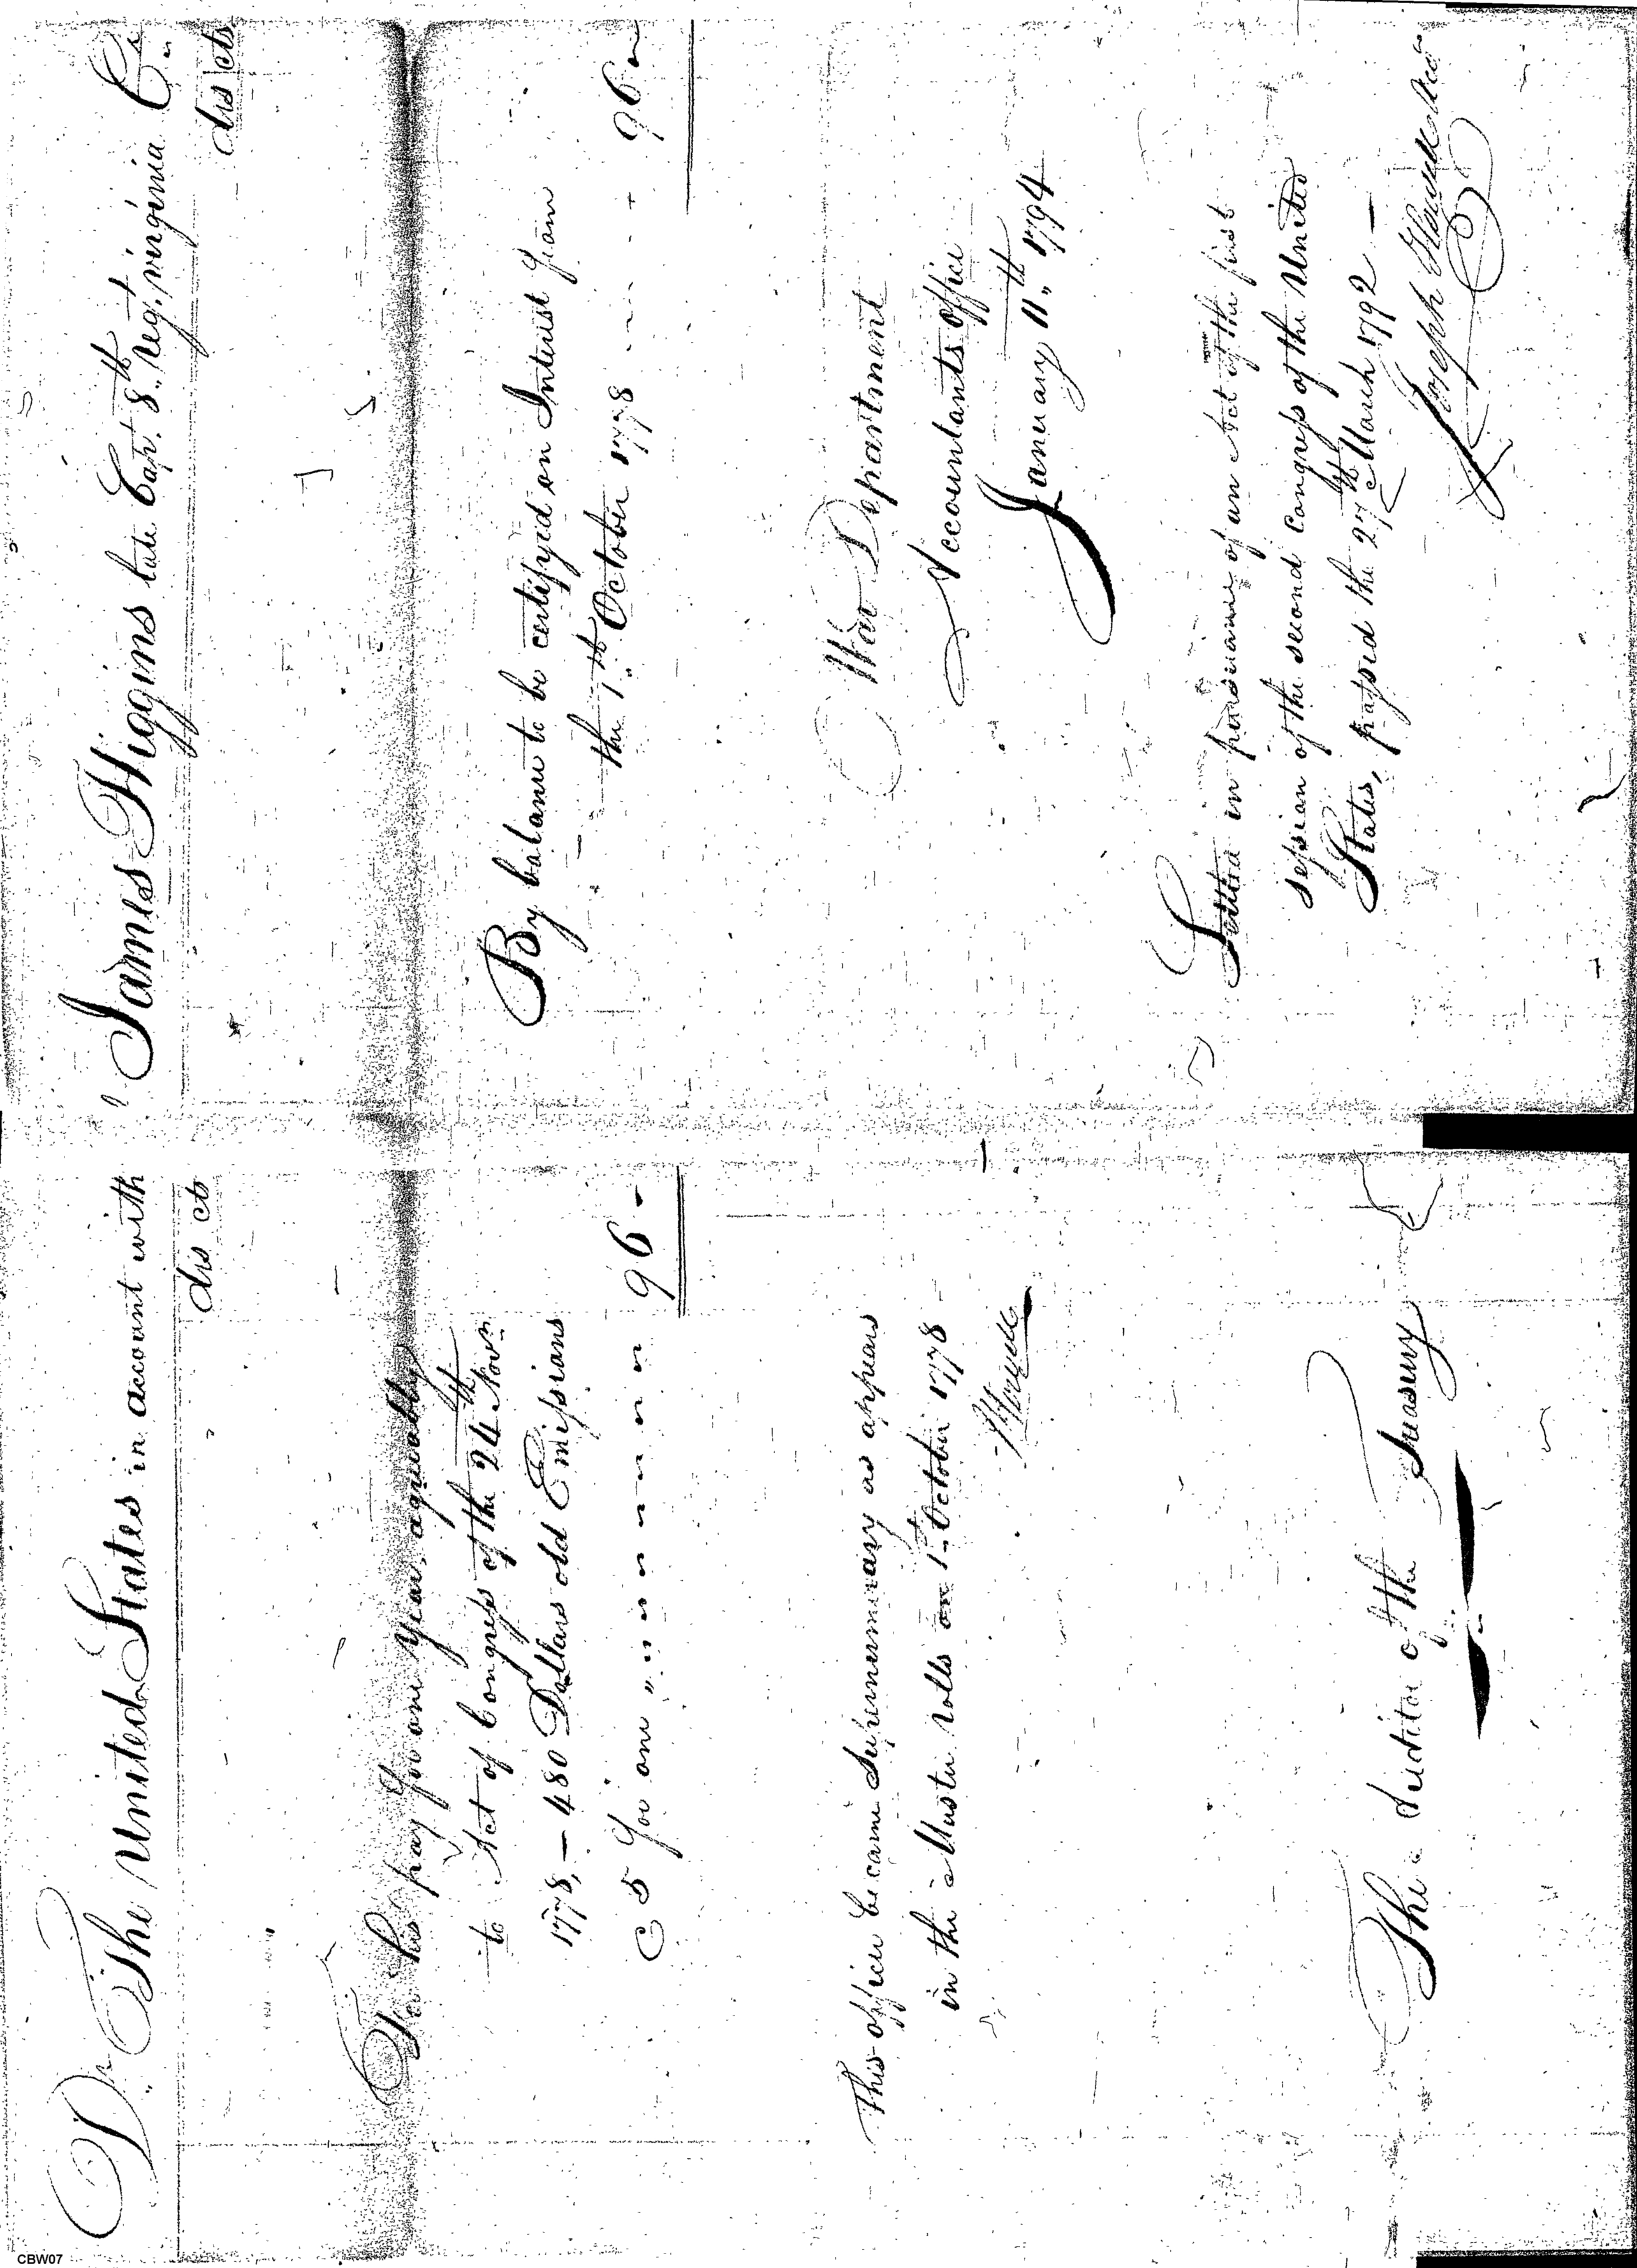 Dr. The United States in account with
dls cts
To his pay for one Year, agreeably
to Act of Congress of the 24th Novr.
1778, — 480 Dollars old Emissions
@ 5 for one " " " " " " " 96 -
This officer became Supernumerary as appears
in the Muster rolls on 1st October 1778 -
The Auditor of the Treasury
James Higgins late Capt. 8th Regt. Virginia Cr.
dls cts
By balance to be certifyed on Interest from
the 1st October 1778 - - - - 96 "
War Department
Accountants Office
January 11th 1794
Settled in pursuance of an Act of the first
session of the second Congress of the United
States, passed the 27th March 1792 —
Joseph
CBW07